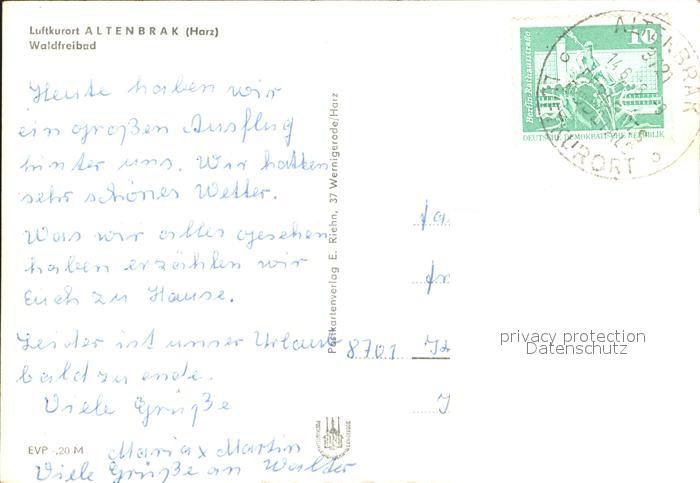 Luftkurort ALTENBRAK (Harz)
Waldfreibad
Heute haben wir
ein großen Ausflug
hinter uns. Wir hatten
sehr schönes Wetter.
Was wir alles gesehen
haben erzählen wir
Euch zu Hause.
Leider ist unser Urlaub
bald zu ende.
Viele Grüße
Maria x Martin
Viele Grüße an Walter
EVP -,20 M
Postkartenverlag E. Riehn, 37 Wernigerode/Harz
10
Berlin, Rathausstraße
DEUTSCHE DEMOKRATISCHE REPUBLIK
ALTENBRAK
3721
LUFTKURORT
8701
privacy protection
Datenschutz